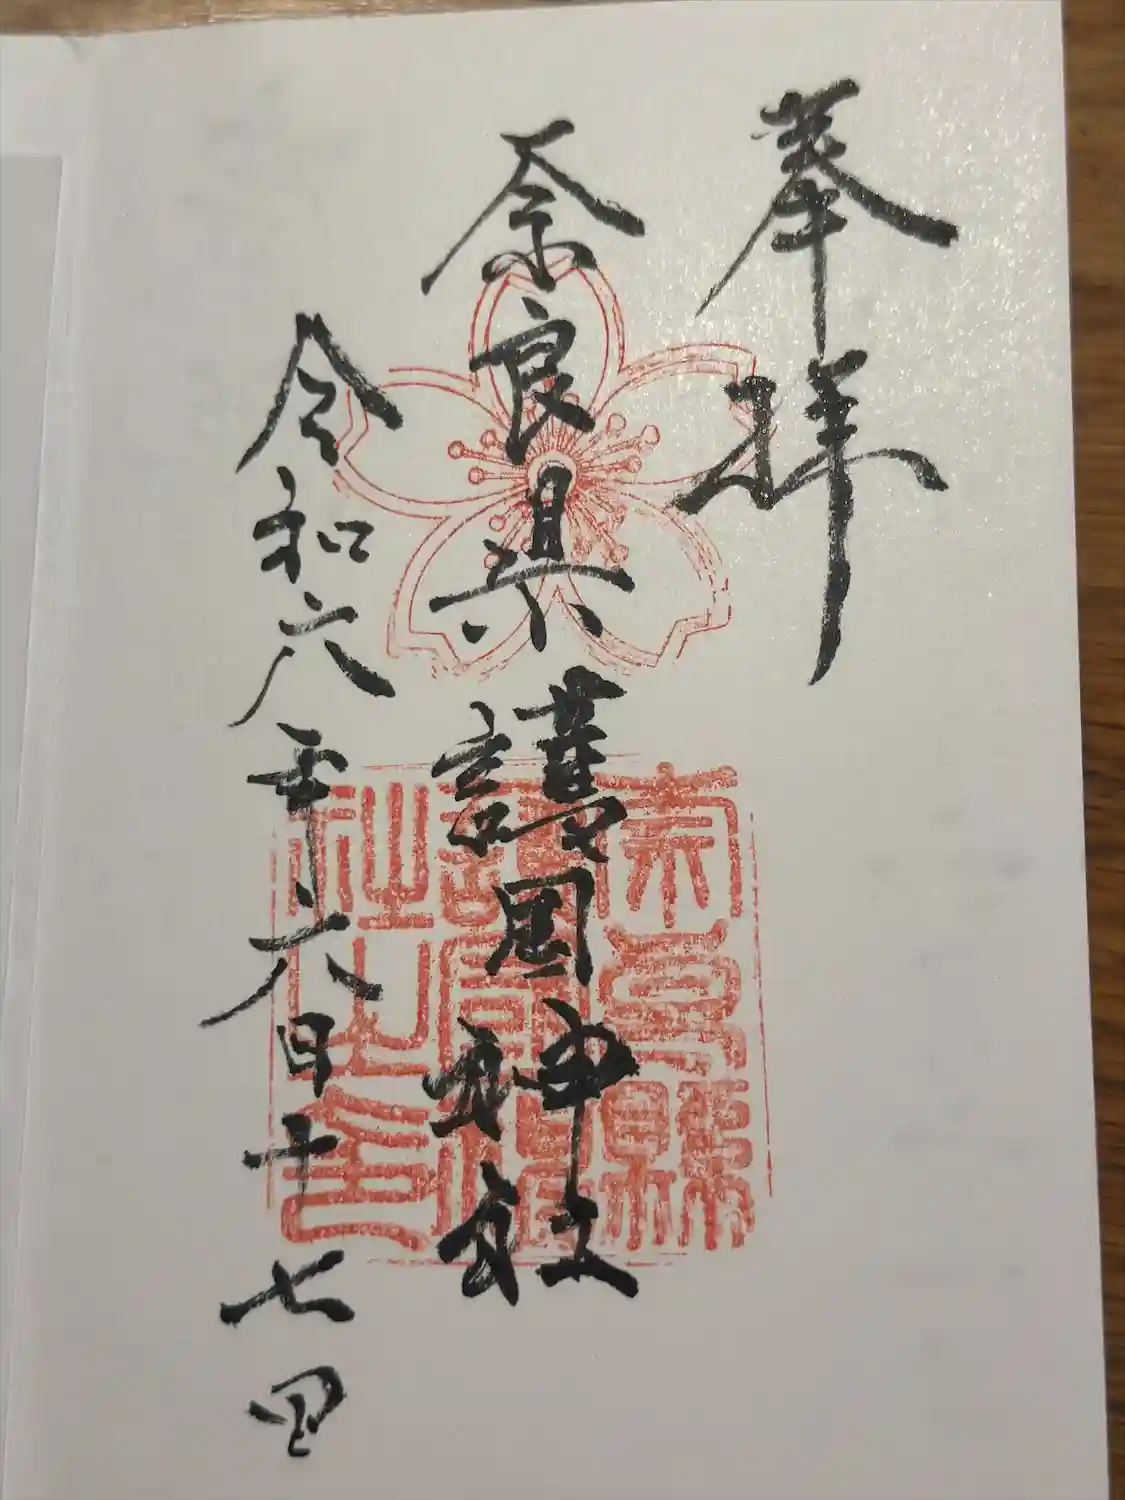 奉拝
奈良県護国神社
令和六年六月十七日
奈良縣護國神社之印